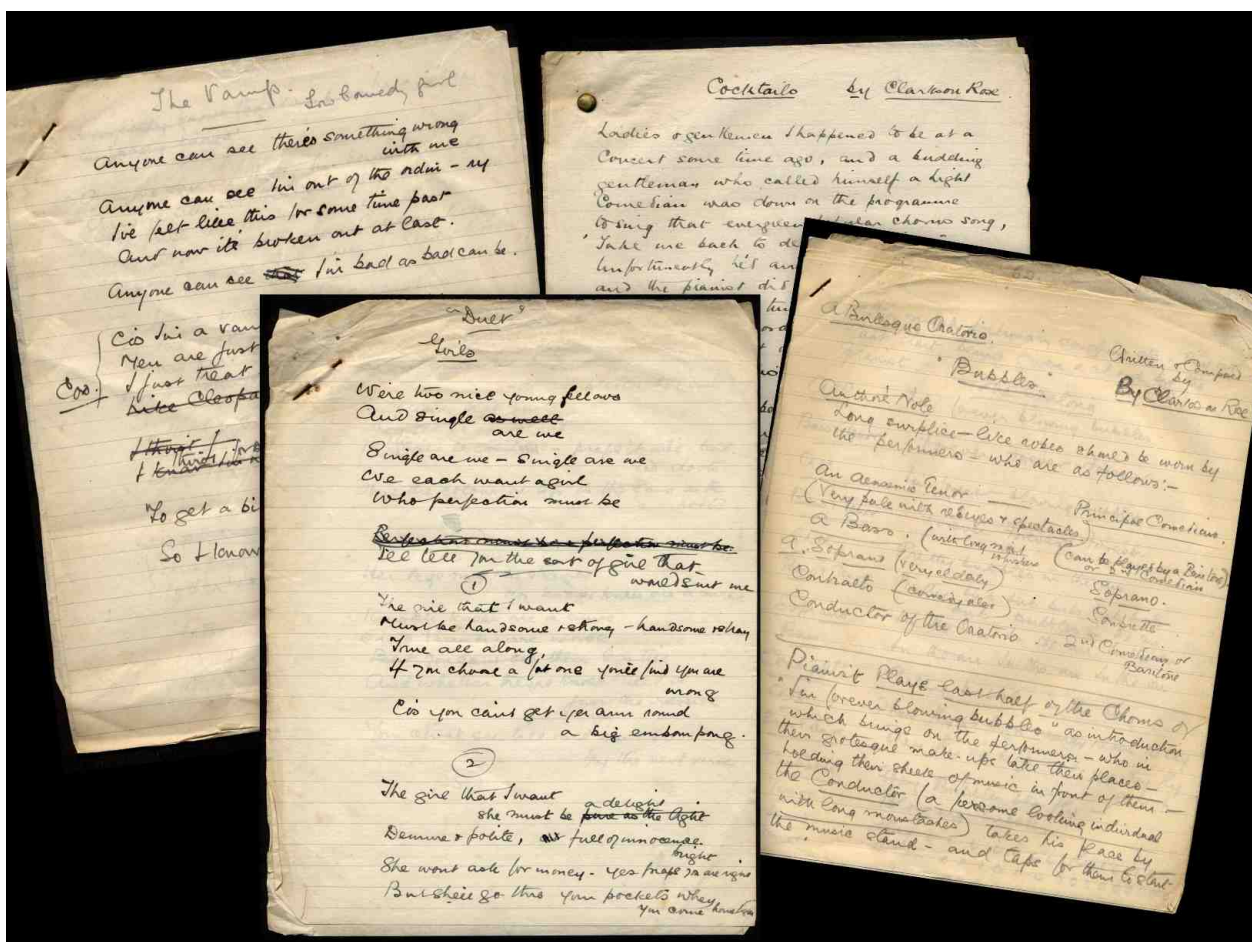 The Vamp. Low Comedy girl
Anyone can see there's something wrong
with me
Anyone can see I'm out of the ordin-ry
I've felt like this for some time past
And now it's broken out at last.
Anyone can see I'm bad as bad can be.
Cos I'm a vam
Men are just
I just treat
Cos.
Like Cleopa
I thirst
To get a bi
So I know
Cocktails by Clarkson Rose.
Ladies & gentlemen I happened to be at a
Concert some time ago, and a budding
gentleman who called himself a light
Comedian was down on the programme
to sing that evergreen popular chorus song,
"Take me back to de
Unfortunately he'd an
and the pianist did
"Duet"
Girls
We're two nice young fellows
And single as well
are we
Single are we - Single are we
We each want a girl
Who perfection must be
Perfection must be perfection must be.
I'll tell you the sort of girl that
would suit me
1
The girl that I want
Must be handsome & strong - handsome & strong
True all along,
If you choose a fat one you'll find you are
wrong
Cos you can't get yer arm round
a big embompong.
2
The girl that I want
a delight
she must be pure as the light
Demure & polite, full of innocence
bright
She wont ask for money - yes praps you are right
But she'll go thro your pockets when
you come home
A Burlesque Oratorio.
Written & Composed
by
"Bubbles"
By Clarkson Rose
Author's Note
Long surplice-like robes should be worn by
the performers - who are as follows:-
An aenemic Tenor Principal Comedian.
(Very pale with red eyes & spectacles)
A Basso. (with long mat whiskers) (can be played by a Baritone
or 2nd Comedian
A. Soprano (very elderly) Soprano.
Contralto (comedy also) Soubrette.
Conductor of the Oratorio. 2nd Comedian or
Baritone
Pianist Plays last half of the Chorus of
"I'm forever blowing bubbles" as introduction
which brings on the performers - who in
their grotesque make-ups take their places -
holding their sheets of music in front of them. -
the Conductor (a looking individual
with long moustaches) takes his place by
the music stand - and taps for them to start